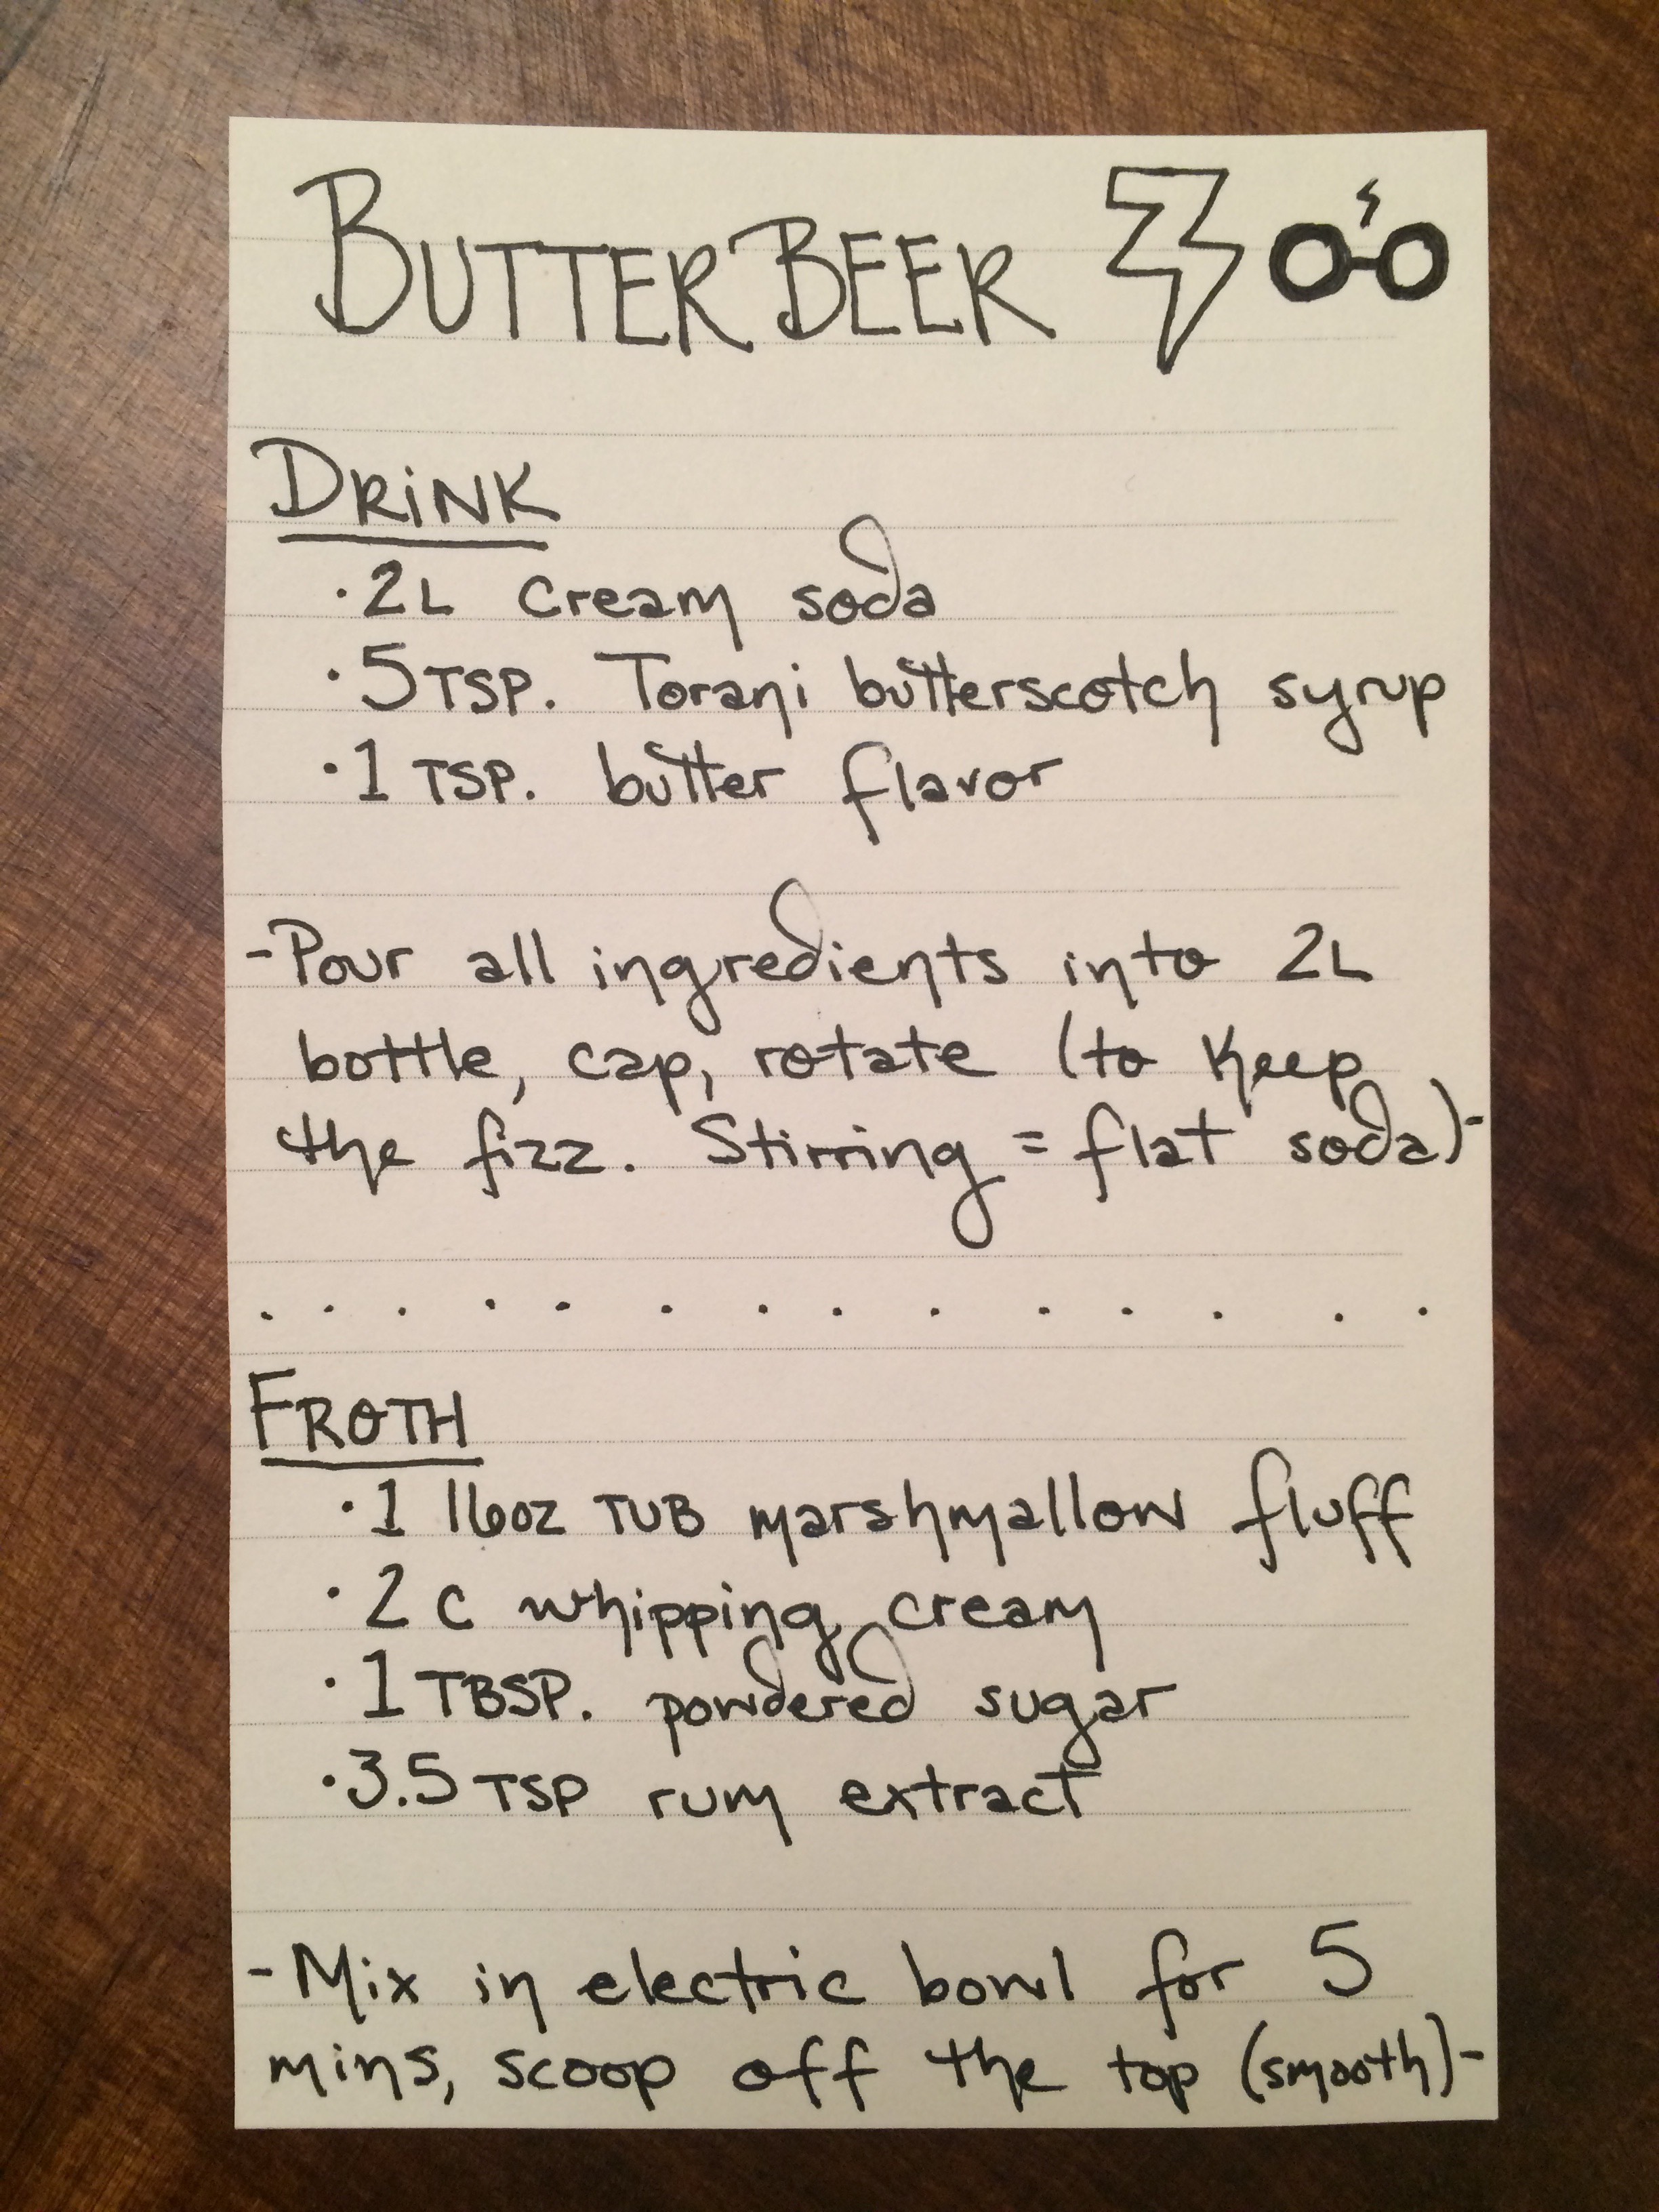 BUTTERBEER
DRiNK
·2L cream soda
·5 TSP. Torani butterscotch syrup
·1 TSP. butter flavor
-Pour all ingredients into 2L
bottle, cap, rotate (to keep
the fizz. Stirring = flat soda)-
. . . . . . . . . . . . . .
FROTH
·1 16oz TUB marshmallow fluff
·2 C whipping cream
·1 TBSP. powdered sugar
·3.5 TSP rum extract
-Mix in electric bowl for 5
mins, scoop off the top (smooth)-